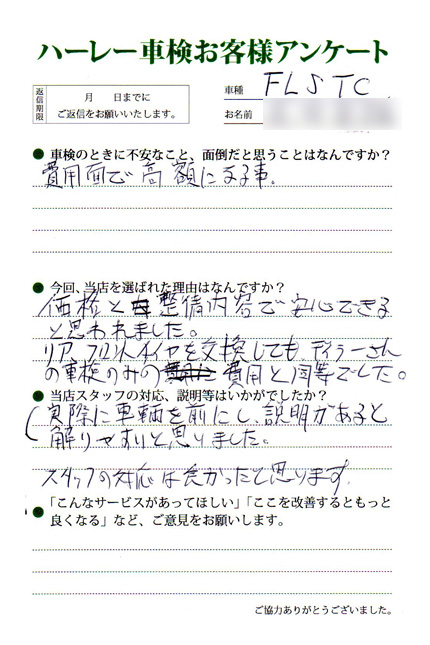 ハーレー車検お客様アンケート
返信期限
月　　日までに
ご返信をお願いいたします。
車種 FLSTC
お名前
● 車検のときに不安なこと、面倒だと思うことはなんですか？
費用面で高額になる事。
● 今回、当店を選ばれた理由はなんですか？
価格と整備内容で安心できる
と思われました。
リア、フロントタイヤを交換しても、ディラーさん
の車検のみの費用と同等でした。
● 当店スタッフの対応、説明等はいかがでしたか？
実際に車輌を前にし、説明があると
解りやすいと思いました。
スタッフの対応は良かったと思います。
● 「こんなサービスがあってほしい」「ここを改善するともっと
良くなる」など、ご意見をお願いします。
ご協力ありがとうございました。